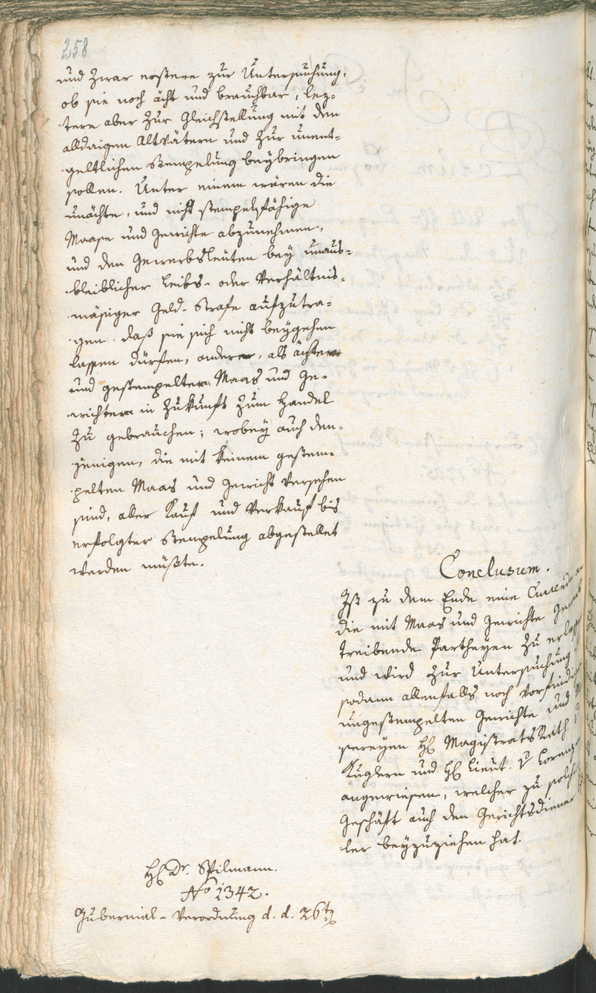 258
und zwar erstere zur Untersuchung,
ob sie noch ächt und brauchbar, lez-
tere aber zur Gleichstellung mit den
alldaigen Altvätern und zur unent-
geltlichen Stempelung beybringen
sollen. Unter einem wären die
unächte, und nicht stempelfähige
Maase und Gewichte abzunehmen,
und den Gewerbsleuten bey unaus-
bleiblicher Leibs- oder Verhältnis-
mäsiger Geld-Strafe aufzutra-
gen, daß sie sich nicht beygehen
lassen dürften, andere, als ächte
und gestempelte Maas und Ge-
wichte in Zukunft zum Handel
zu gebrauchen; wobey auch den-
jenigen, die mit keinem gestem-
pelten Maas und Gewicht versehen
sind, aller Kauf und Verkauf bis
erfolgter Stempelung abgestellet
werden müßte.
Conclusum.
Ist zu dem Ende eine
die mit Maas und Gewichte
treibende Partheyen zu
und wird zur Untersuchung
sodann allenfalls noch
ungestempelten Gewichte und
H Magistrats Rath
Kuglern und H Lieut. v
angewiesen, welcher zu
Geschäft auch den Gerichtsdiener
ler beyzuziehen hat.
H Dr. Spilmann.
No 1342.
Gubernial-Verordnung d. d. 26ty